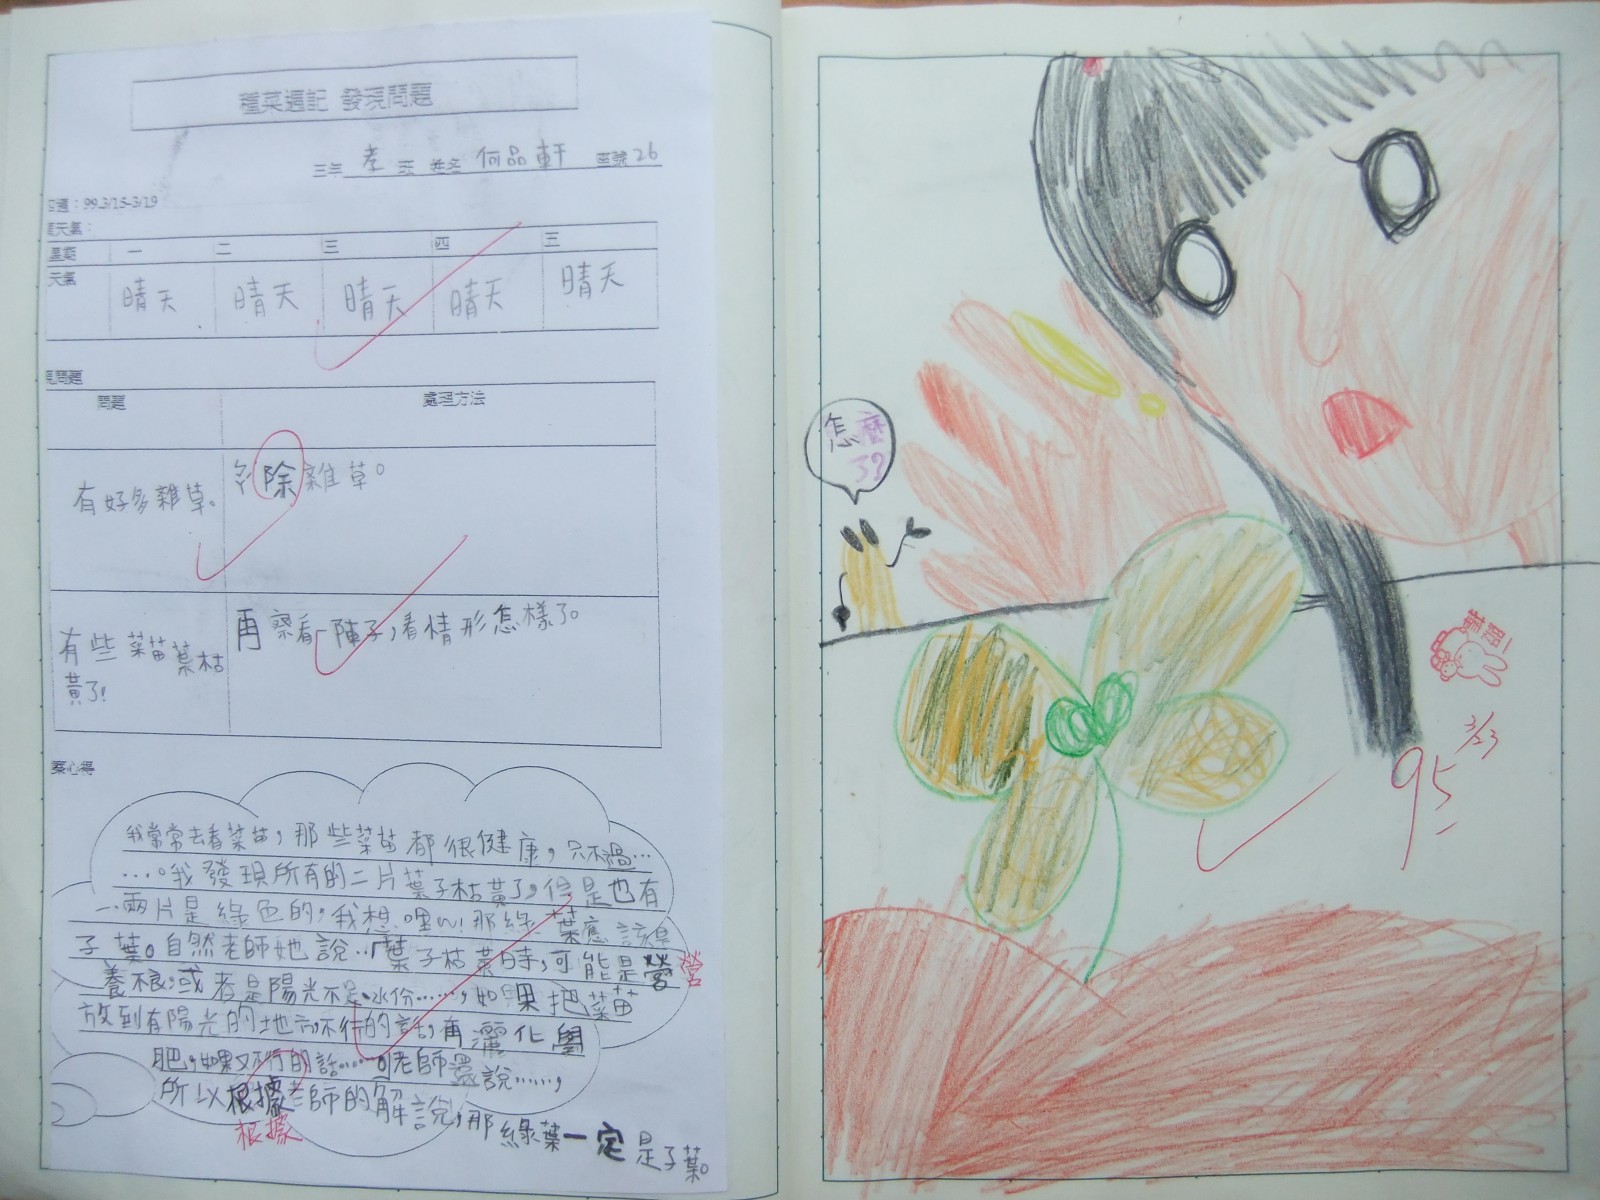 種菜週記 發現問題
三年 孝 班 姓名 何品軒 座號 26
週：99.3/15-3/19
天氣：
星期 一 二 三 四 五
天氣 晴天 晴天 晴天 晴天 晴天
現問題
問題 處理方法
有好多雜草。 除雜草。
有些菜苗葉枯黃了! 再察看一陣子,看情形怎樣了。
察心得
我常常去看菜苗,那些菜苗都很健康,只不過…
….。我發現所有的二片葉子枯黃了,但是也有
…兩片是綠色的;我想哩~!那綠葉應該是
子葉。自然老師她說…「葉子枯黃時,可能是營 營
養根;或者是陽光不足、水份……,如果把菜苗
放到有陽光的地方不行的話,再灑化學
肥,如果又不行的話……」老師還說……,
所以根據老師的解說,那綠葉一定是子葉。
根據
怎麼
了?
3/23
95